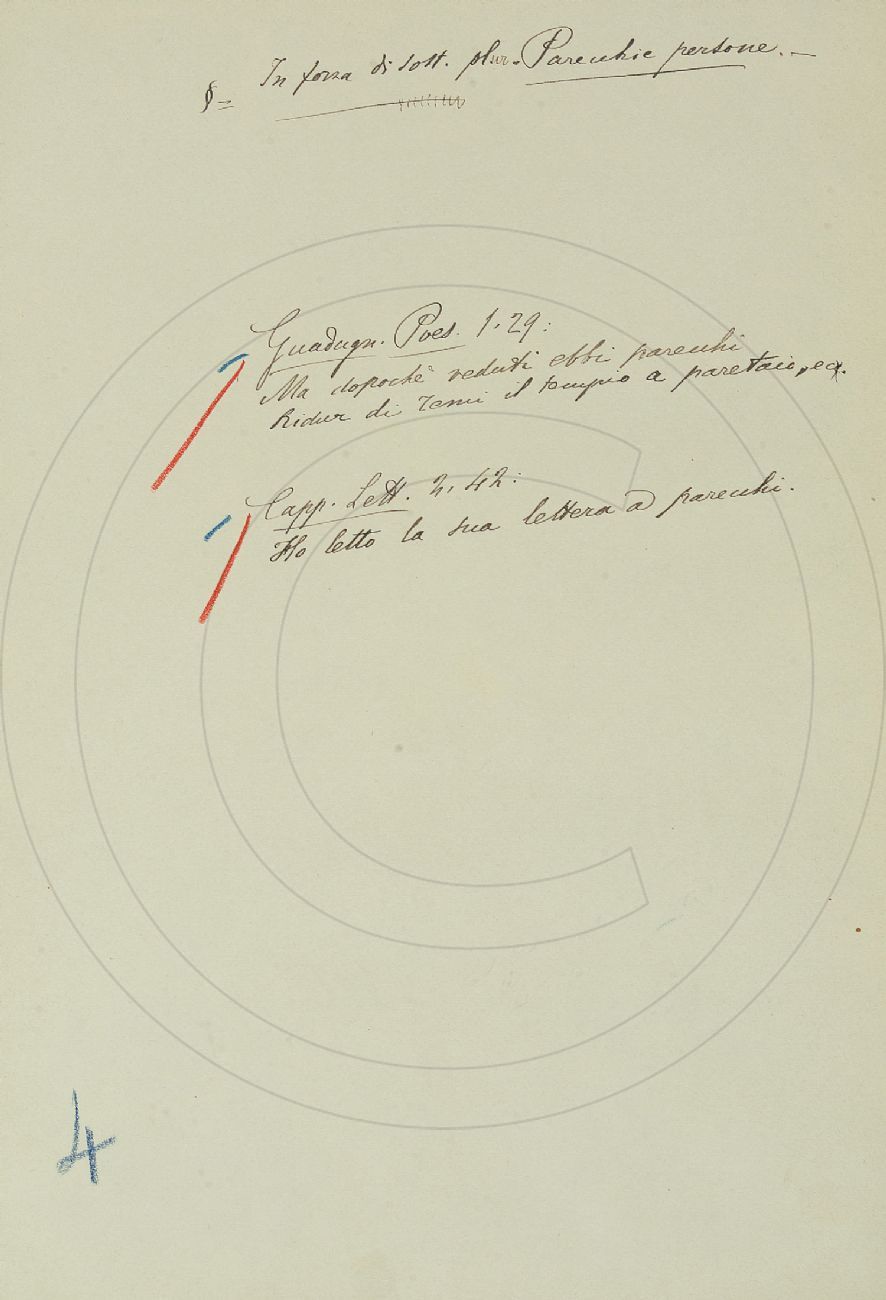 §= In forza di sost. plur. Parecchie persone. —
Guadagn. Poes. 1. 29:
Ma dopochè veduti ebbi parecchi
Ridur di Temi il tempio a paretaio, ec.
Capp. Lett. 2. 42:
Ho letto la sua lettera a parecchi.
4